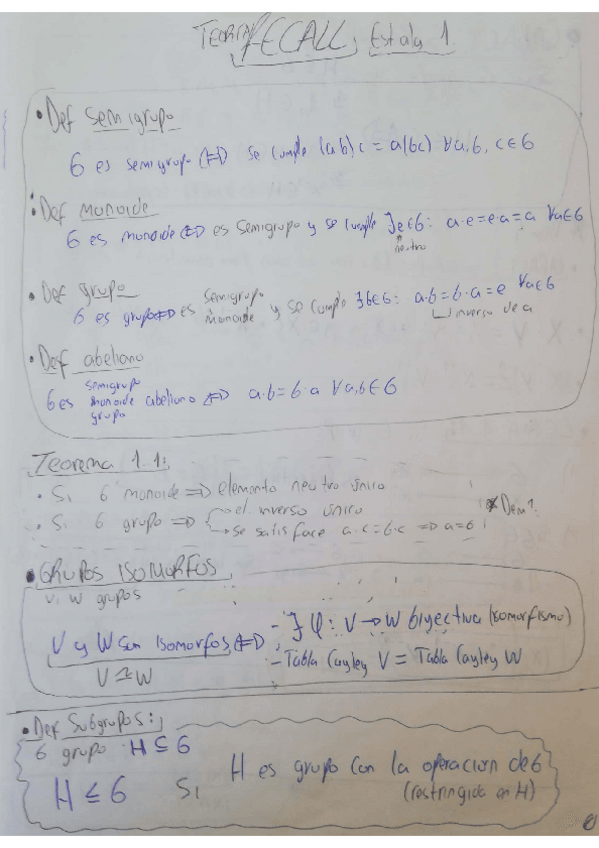 TEORÍA RECALL Estalg 1
• Def semigrupo
G es semigrupo ⟺ se cumple (ab)c = a(bc) ∀a,b,c∈G
• Def Monoide
G es monoide ⟺ es semigrupo y se cumple ∃e∈G: a·e=e·a=a ∀a∈G
neutro
• Def grupo
G es grupo ⟺ es semigrupo monoide y se cumple ∃b∈G: a·b=b·a=e ∀a∈G
inverso de a
• Def abeliano
G es semigrupo monoide grupo abeliano ⟺ a·b=b·a ∀a,b∈G
Teorema 1.1:
• Si G monoide ⟹ elemento neutro único
• Si G grupo ⟹ → el inverso único
→ se satisface a·c=b·c ⟹ a=b * Dem 1
• GRUPOS ISOMORFOS
V, W grupos
V y W son isomorfos ⟺ - ∃ φ: V → W biyectiva (isomorfismo)
- Tabla Cayley V = Tabla Cayley W
V ≃ W
• Def Subgrupos:
G grupo H ⊆ G
H ≤ G Si H es grupo con la operacion de G
(restringida en H)